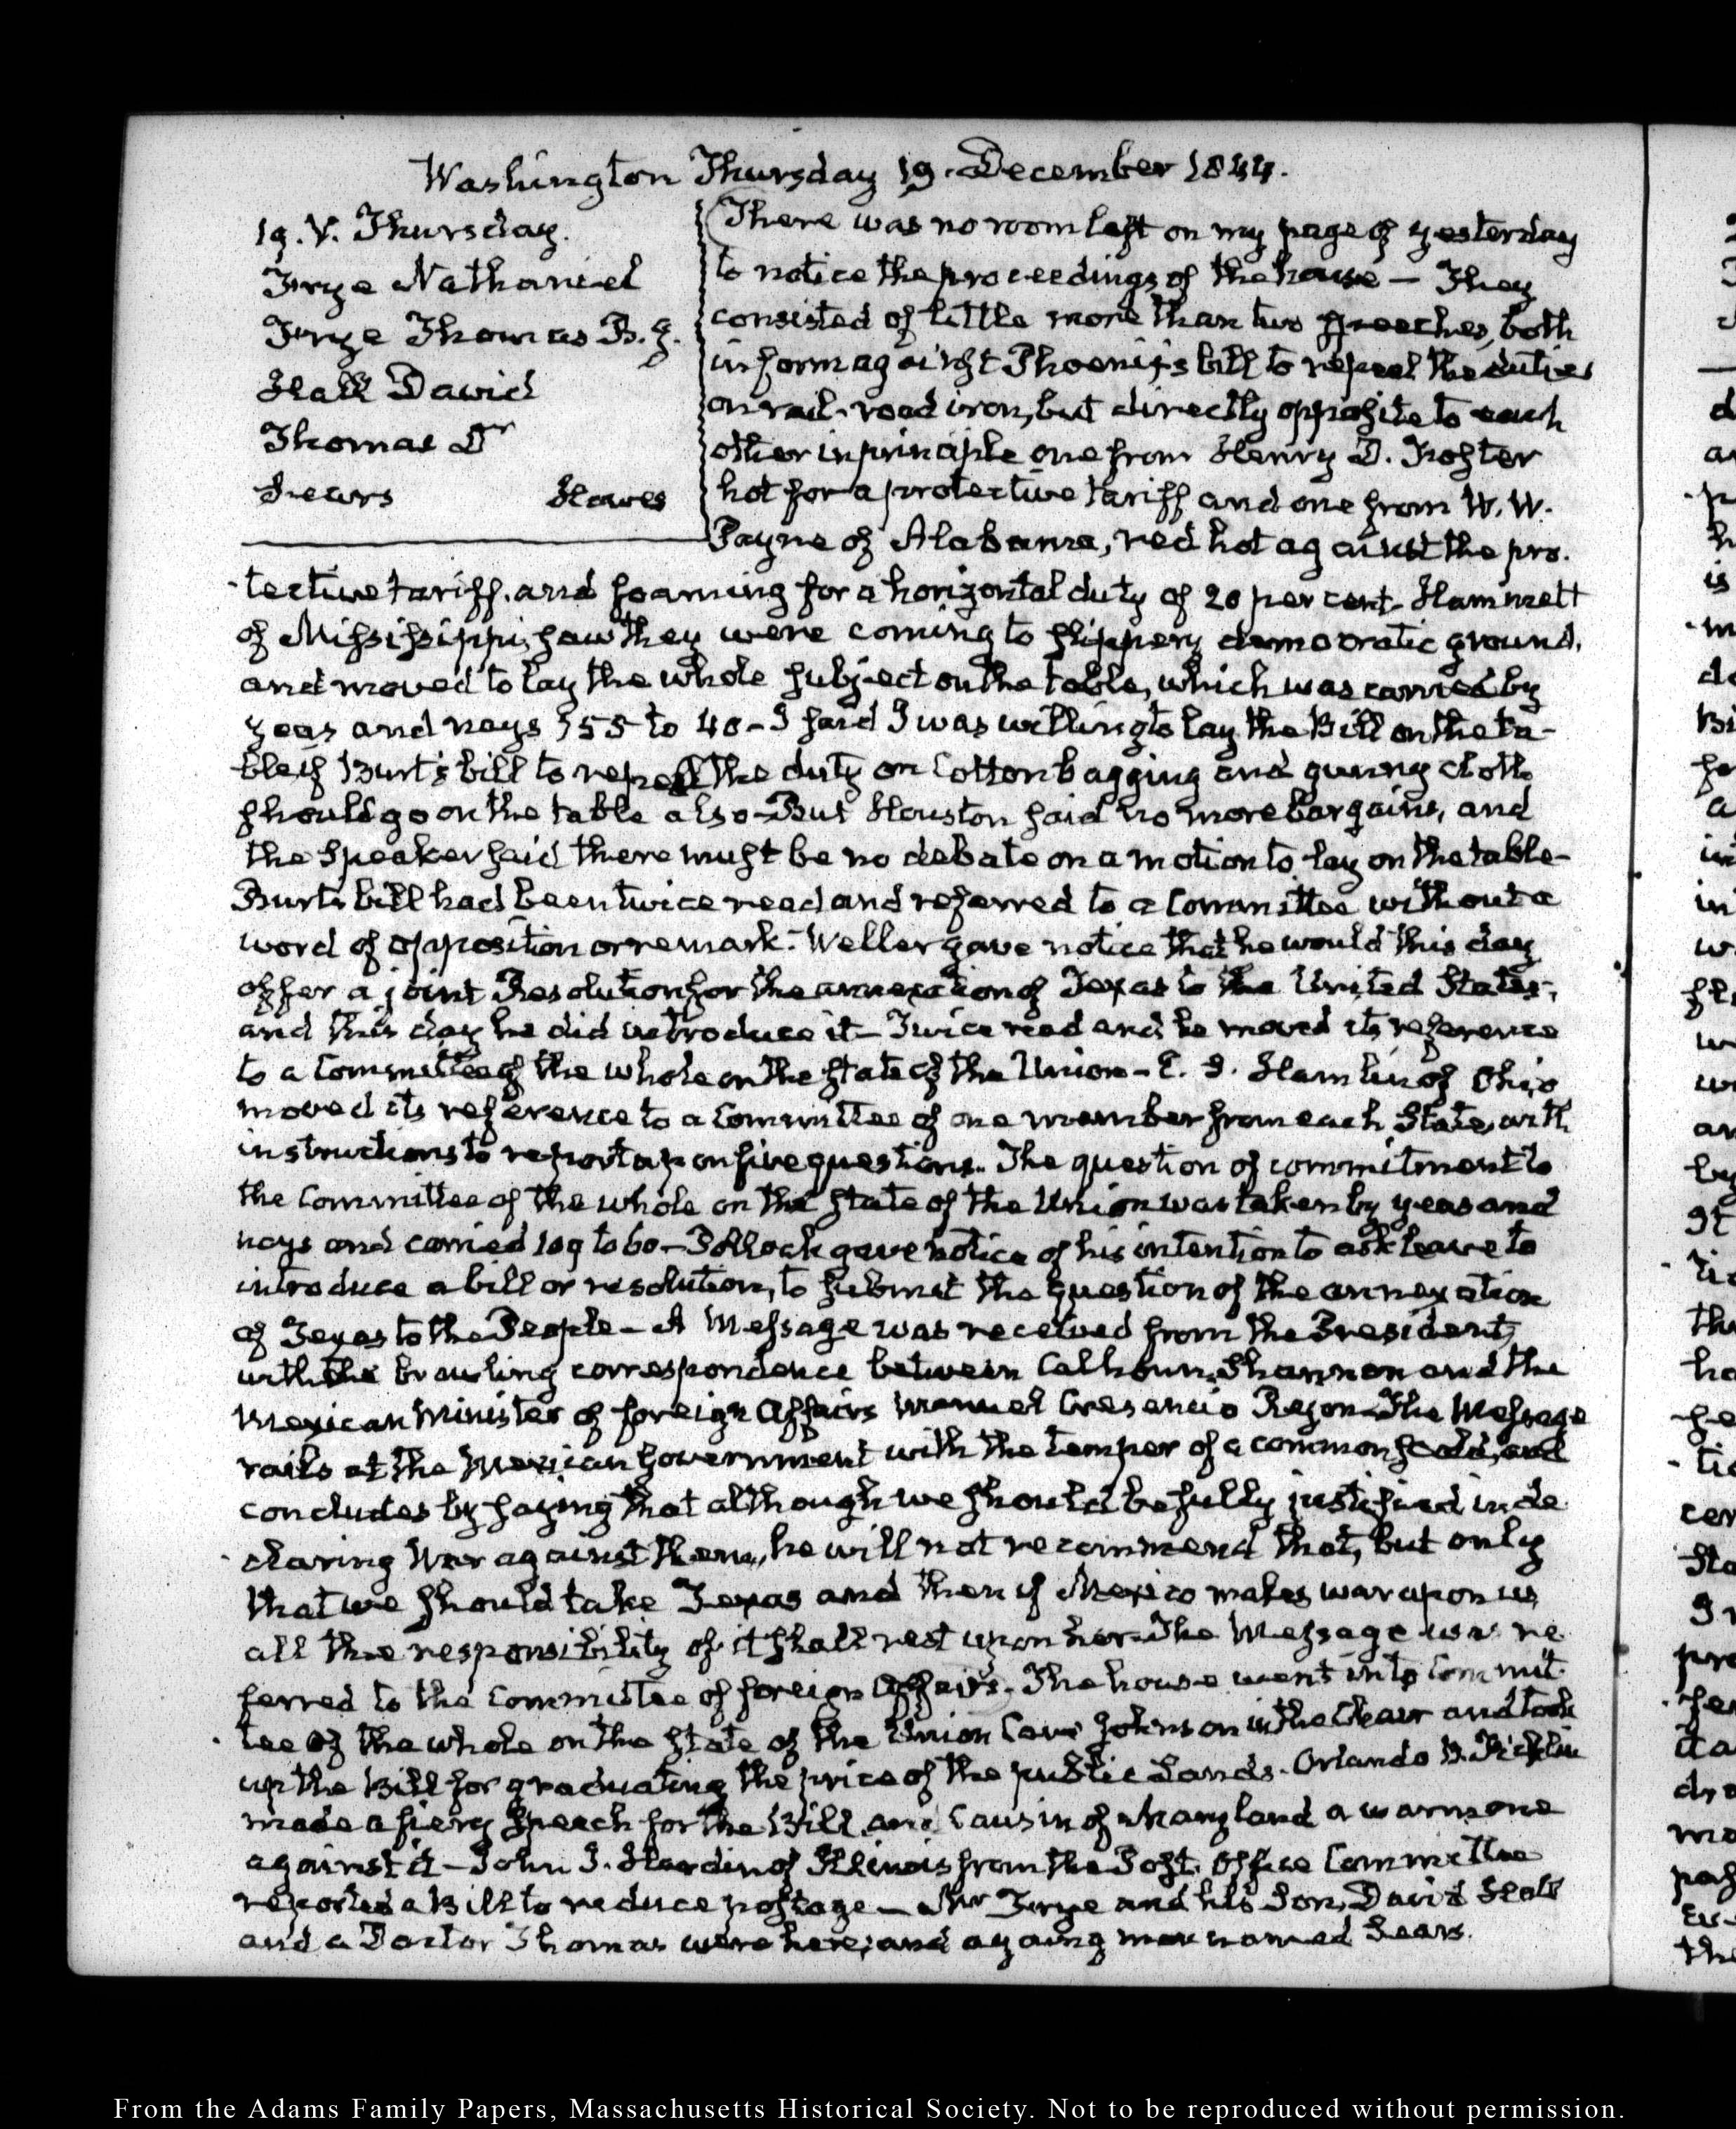 Washington Thursday 19. December 1844.
19. V. Thursday.
Frye Nathaniel
Frye Thomas B. J.
Hall David
Thomas Dr
Sears Hawes
There was no room left on my page of yesterday
to notice the proceedings of the house — They
consisted of little more than two speeches, both
in form against Phoenix's bill to repeal the duties
on rail-road iron, but directly opposite to each
other in principle one from Henry D. Foster
hot for a protective tariff and one from W. W.
Payne of Alabama, red hot against the pro-
tective tariff, and foaming for a horizontal duty of 20 per cent- Hammett
of Mississippi, saw they were coming to slippery democratic ground,
and moved to lay the whole subject on the table, which was carried by
yeas and nays 155 to 40 - I said I was willing to lay the Bill on the ta-
ble if Burt's bill to repeal the duty on Cotton bagging and gunny cloth
should go on the table also - But Houston said no more bargains, and
the Speaker said there must be no debate on a motion to lay on the table-
Burt's bill had been twice read and referred to a Committee without a
word of opposition or remark. Weller gave notice that he would this day
offer a joint Resolution for the annexation of Texas to the United States,
and this day he did introduce it - Twice read and he moved its reference
to a Committee of the whole on the state of the Union - E. S. Hamlin of Ohio
moved its reference to a Committee of one member from each State, with
instructions to report upon five questions. The question of commitment to
the Committee of the whole on the state of the Union was taken by yeas and
nays and carried 109 to 60 - Pollock gave notice of his intention to ask leave to
introduce a bill or resolution, to submit the question of the annexation
of Texas to the People - A Message was received from the President,
with the brawling correspondence between Calhoun, Shannon and the
Mexican Minister of foreign Affairs Manuel Cresencio Rejon - The Message
rails at the Mexican Government with the temper of a common scold, and
concludes by saying that although we should be fully justified in de
claring War against them, he will not recommend that, but only
that we should take Texas and then if Mexico makes war upon us
all the responsibility of it shall rest upon her - The Message was re
ferred to the Committee of foreign Affairs. The house went into Commit
tee of the whole on the state of the Union Cave Johnson in the Chair and took
up the Bill for graduating the price of the public Lands. Orlando B. Ficklin
made a fiery speech for the Bill, and Causin of Maryland a warm one
against it - John J. Hardin of Illinois from the Post. Office Committee
reported a Bill to reduce postage — Mr Frye and his Son, David Hall
and a Doctor Thomas were here; and a young man named Sears.
From the Adams Family Papers, Massachusetts Historical Society. Not to be reproduced without permission.